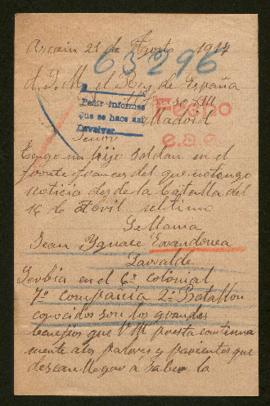 Ascain 21 de Agosto 1917
63296
A S. M. el Rey de España
Madrid
Pedir informes
que se hace así
Devolver
Señor
Tengo un hijo soldado en el
frente frances del que no tengo
noticia desde la batalla del
16 de Abril ultimo
Se llama
Jean Ygnace
Servia en el 6º colonial
7ª compañia 2º Batallon
conocidos son los grandes
que V M presta continua
mente a los padres y parientes que
desean llegar a saber la